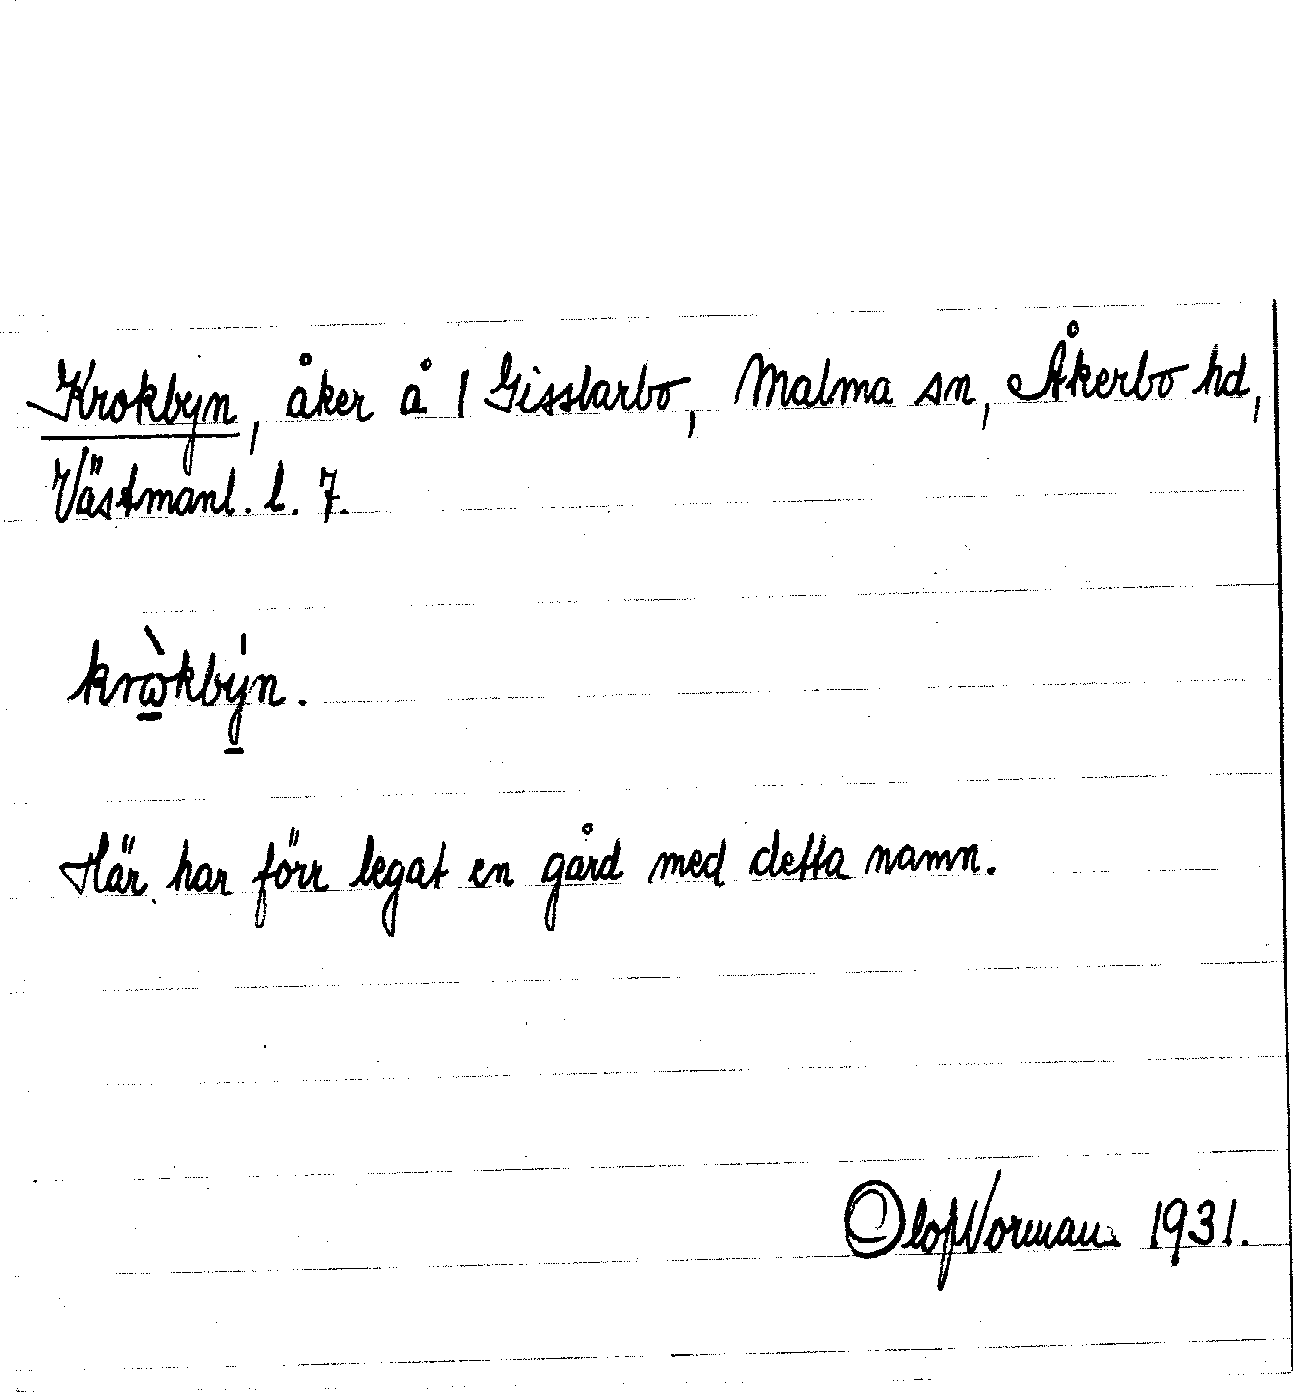 Krokbyn, åker å 1 Gisslarbo, Malma sn, Åkerbo hd,
Västmanl. l. 7.
krὼ̲kbý̲n.
Här har förr legat en gård med detta namn.
Olof Norman 1931.